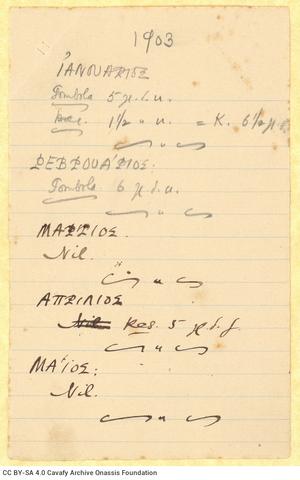 1903
ἸΑΝΟΥΑΡΙΟΣ
Tombola 5 μ.δ.υ.
Res. 1½ " υ. = Κ. 6½
ΦΕΒΡΟΥΆΡΙΟΣ:
Tombola 6 μ.δ.υ.
ΜΑΡΤΙΟΣ.
Nil.
ΑΠΡΙΛΙΟΣ
Nil Res. 5
ΜΑΪΟΣ:
Nil.
CC BY-SA 4.0 Cavafy Archive Onassis Foundation